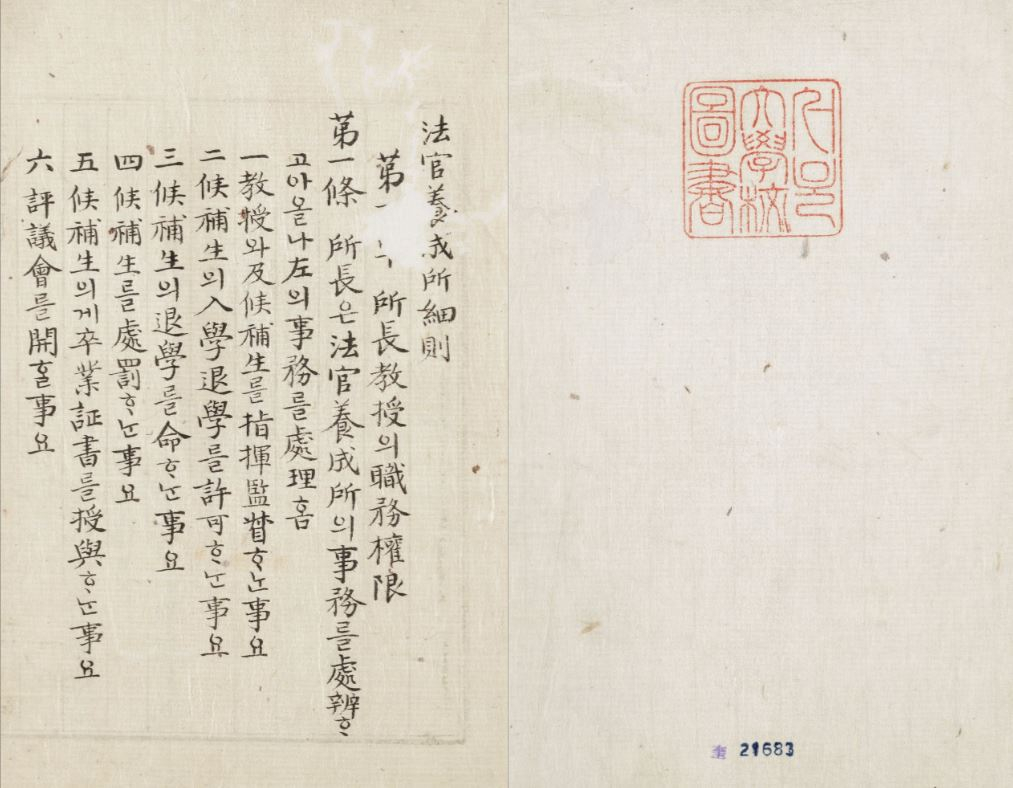 서울
大學校
圖書
奎 21683
法官養成所細則
第 所長教授의職務權限
第一條 所長은法官養成所의事務를處辨ᄒᆞ
고아올나左의事務를處理홈
一 教授와及候補生를指揮監督ᄒᆞᄂᆞᆫ事요
二 候補生의入學退學를許可ᄒᆞᄂᆞᆫ事요
三 候補生의退學를命ᄒᆞᄂᆞᆫ事요
四 候補生를處罰ᄒᆞᄂᆞᆫ事요
五 候補生의게卒業証書를授與ᄒᆞᄂᆞᆫ事요
六 評議會를開ᄒᆞᆯ事요